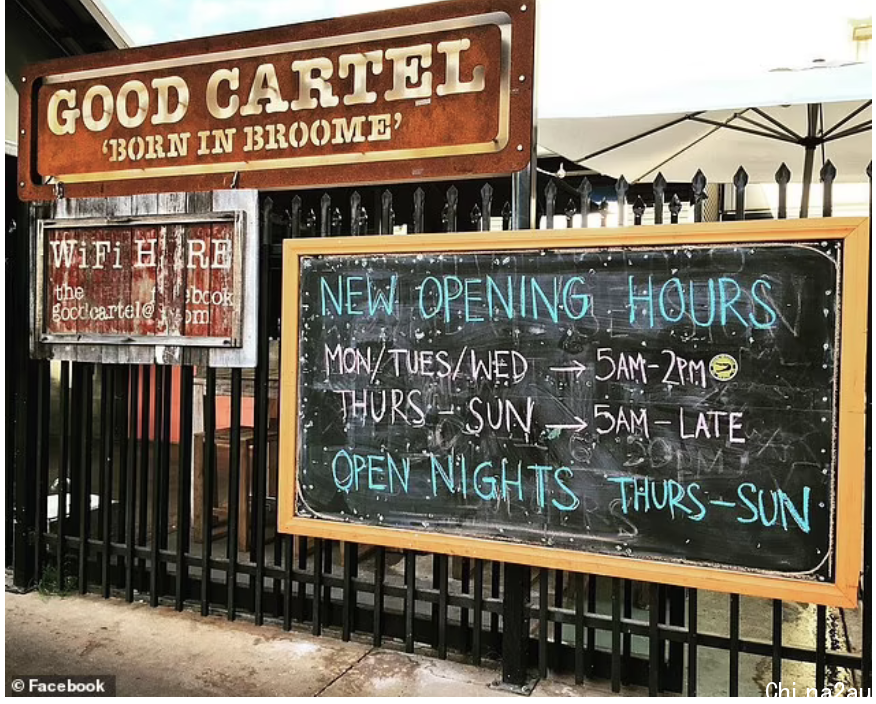 GOOD CARTEL
'BORN IN BROOME'
WiFi H RE
the book
goodcartel@ om
NEW OPENING HOURS
MON/TUES/WED → 5AM-2PM
THURS - SUN → 5AM - LATE
OPEN NIGHTS THURS-SUN
© Facebook
China2au